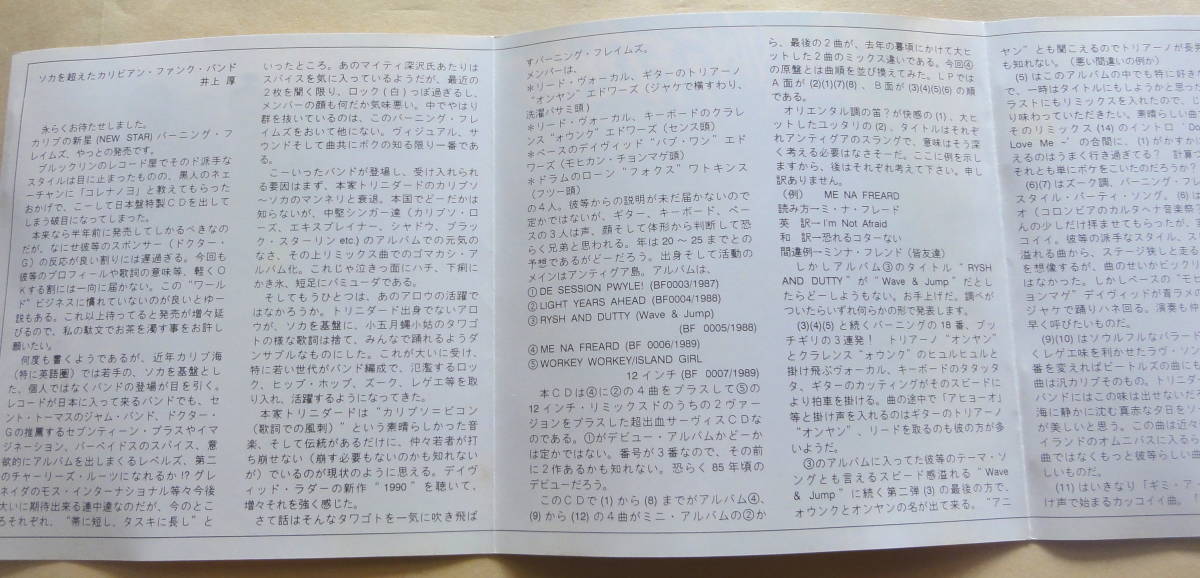 ソカを超えたカリビアン・ファンク・バンド
井上 厚
永らくお待たせしました。
カリブの新星 (NEW STAR) バーニング・フ
レイムズ、やっとの発売です。
ブルックリンのレコード屋でそのド派手な
スタイルは目に止まったものの、黒人のネェ
ーチャンに「コレナノヨ」と教えてもらった
おかげで、こーして日本盤特製CDを出して
しまう破目になってしまった。
本来なら半年前に発売してしかるべきなの
だが、なにせ彼等のスポンサー (ドクター・
G) の反応が良い割りには遅過ぎる。今回も
彼等のプロフィールや歌詞の意味等、軽くO
Kする割には一向に届かない。この“ワール
ド”ビジネスに慣れていないのが良いとゆー
説もある。これ以上待ってると発売が増々延
びるので、私の駄文でお茶を濁す事をお許し
願いたい。
何度も書くようであるが、近年カリブ海
(特に英語圏) では若手の、ソカを基盤とし
た、個人ではなくバンドの登場が目を引く。
レコードが日本に入って来るバンドでも、セ
ント・トーマスのジャム・バンド、ドクター・
Gの推薦するセブンティーン・プラスやイマ
ジネーション、バーベイドスのスパイス、意
欲的にアルバムを出しまくるレベルズ、第二
のチャーリーズ・ルーツになれるか!?グレ
ネイダのモス・インターナショナル等々今後
大いに期待出来る連中達なのだが、今のとこ
ろそれぞれ、“帯に短し、タスキに長し”と
いったところ。あのマイティ深沢氏あたりは
スパイスを気に入っているようだが、最近の
2枚を聞く限り、ロック (白) っぽ過ぎるし、
メンバーの顔も何だか気味悪い。中でやはり
群を抜いているのは、このバーニング・フレ
イムズをおいて他にない。ヴィジュアル、サ
ウンドそして曲共にボクの知る限り一番であ
る。
こーいったバンドが登場し、受け入れられ
る要因はまず、本家トリニダードのカリプソ
〜ソカのマンネリと衰退。本国でどーだかは
知らないが、中堅シンガー達 (カリプソ・ロ
ーズ、エキスプレイナー、シャドウ、ブラッ
ク・スターリン etc.) のアルバムでの元気の
なさ、その上リミックス曲でのゴマカシ・ア
ルバム化。これじゃ泣きっ面にハチ、下痢に
かき氷、短足にバミューダである。
そしてもうひとつは、あのアロウの活躍で
はなかろうか。トリニダード出身でないアロ
ウが、ソカを基盤に、小五月蝿小姑のタワゴ
トの様な歌詞は捨て、みんなで踊れるようダ
ンサブルなものにした。これが大いに受け、
特に若い世代がバンド編成で、氾濫するロッ
ク、ヒップ・ホップ、ズーク、レゲエ等を取
り入れ、活躍するようになってきた。
本家トリニダードは“カリプソ=ピコン
(歌詞での風刺)”という素晴らしかった音
楽、そして伝統があるだけに、仲々若者が打
ち崩せない (崩す必要もないのかも知れない
が) でいるのが現状のように思える。デイヴ
ィッド・ラダーの新作“1990”を聴いて、
増々それを強く感じた。
さて話はそんなタワゴトを一気に吹き飛ば
すバーニング・フレイムズ。
メンバーは、
*リード・ヴォーカル、ギターのトリアーノ
“オンヤン”エドワーズ (ジャケで横すわり、
洗濯バサミ頭)
*リード・ヴォーカル、キーボードのクラレ
ンス“オウンク”エドワーズ (センス頭)
*ベースのデイヴィッド“バブ・ワン”エド
ワーズ (モヒカン・チョンマゲ頭)
*ドラムのローン“フォクス”ワトキンス
(フツー頭)
の4人。彼等からの説明が未だ届かないので
定かではないが、ギター、キーボード、ベー
スの3人は声、顔そして体形から判断して恐
らく兄弟と思われる。年は20〜25までとの
予想であるがどーだろう。出身そして活動の
メインはアンティグア島。アルバムは、
① DE SESSION PWYLE! (BF0003/1987)
② LIGHT YEARS AHEAD (BF0004/1988)
③ RYSH AND DUTTY (Wave & Jump)
(BF 0005/1988)
④ ME NA FREARD (BF 0006/1989)
⑤ WORKEY WORKEY/ISLAND GIRL
12インチ (BF 0007/1989)
本CDは④に②の4曲をプラスして⑤の
12インチ・リミックスドのうちの2ヴァー
ジョンをプラスした超出血サーヴィスCDな
のである。①がデビュー・アルバムかどーか
は定かではない。番号が3番なので、その前
に2作あるかも知れない。恐らく85年頃の
デビューだろう。
このCDで (1) から (8) までがアルバム④、
(9) から (12) の4曲がミニ・アルバムの②か
ら、最後の2曲が、去年の暮頃にかけて大ヒ
ットした2曲のミックス違いである。今回④
の原盤とは曲順を並び換えてみた。LPでは
A面が (2)(1)(7)(8)、B面が (3)(4)(5)(6) の順
である。
オリエンタル調の笛?が快感の (1)、大ヒ
ットしたユッタリの (2)、タイトルはそれぞ
れアンティグアのスラングで、意味はそう深
く考える必要はなさそーだ。ここに例を示し
ますから、後はそれぞれ考えて下さい。申し
訳ありません。
(例) ME NA FREARD
読み方→ミ・ナ・フレード
英 訳→I'm Not Afraid
和 訳→恐れるコターない
間違例→ミンナ・フレンド (皆友達)
しかしアルバム③のタイトル“RYSH
AND DUTTY”が“Wave & Jump”だとし
たらどーしようもない。お手上げだ。調べが
ついたらいずれ何らかの形で発表します。
(3)(4)(5) と続くバーニングの18番、ブッ
チギリの3連発! トリアーノ“オンヤン”
とクラレンス“オウンク”のヒュルヒュルと
掛け飛ぶヴォーカル、キーボードのタタッタ
タ、ギターのカッティングがそのスピードに
より拍車を掛ける。曲の途中で「アヒョーオ」
等と掛け声を入れるのはギターのトリアーノ
“オンヤン”、リードを取るのも彼の方が多
いようだ。
③のアルバムに入ってた彼等のテーマ・ソ
ングとも言えるスピード感溢れる“Wave
& Jump”に続く第二弾 (3) の最後の方で、
オウンクとオンヤンの名が出て来る。“アニ
ヤン”とも聞こえるのでトリアーノが長男
も知れない。(悪い間違いの例か)
(5) はこのアルバムの中でも特に好き
で、一時はタイトルにもしようかと思った
ラストにもリミックスを入れたので、
り味わっていただきたい。素晴らしい曲
そのリミックス (14) のイントロ“D
Love Me〜”の合間に、(1) がかすか
えるのはうまく行き過ぎてる? 計算
それとも単にボケをこいたのだろうか?
(6)(7) はズーク調、バーニング・フレ
スタイル・パーティ・ソング。(6) は
オ (コロンビアのカルタヘナ音楽祭
んの少しだけ拝ませてもらったが、
コイイ。彼等の派手なスタイル、ス
溢れる曲から、ステージ狭しと走る
を想像するが、曲のせいかビックリ
はなかった。しかしベースの“モヒ
ョンマゲ”デイヴィッドが青ラメの
ジャケで踊りハネ回る。演奏も
早く呼びたいものだ。
(9)(10) はソウルフルなバラード
くレゲエ味を利かせたラヴ・ソン
番を変えればビートルズの曲にも
曲は汎カリブそのもの。トリニダ
バンドにはこの味は出せないだろ
海に静かに沈む真赤な夕日をソ
が美しいと思う。この曲は近々
イランドのオムニバスに入る
曲ではなくもっと彼等らしい曲
しいものだ。
(11) はいきなり「ギミ・ア
け声で始まるカッコイイ曲。